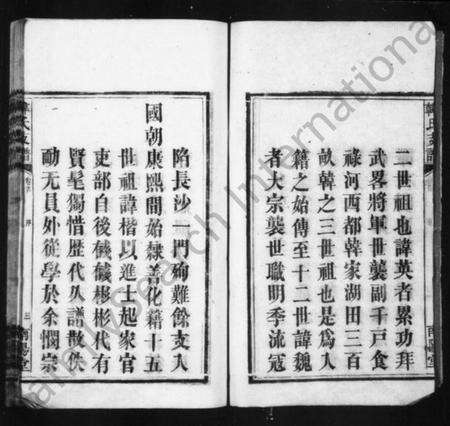 二世祖也諱英者累功拜
武畧將軍世襲副千戶食
祿河西都韓家湖田三百
畝韓之三世祖也是爲入
籍之始傳至十二世諱魏
者大宗襲世職明季流寇
陷長沙一門殉難餘支入
國朝康熙間始隸善化籍十五
世祖諱楷以進士起家官
吏部自後彬彬代有
賢髦獨惜歴代久譜散佚
勷无員外從學於余憫宗
韓氏支譜
南陽堂
序
三
FamilySearch International